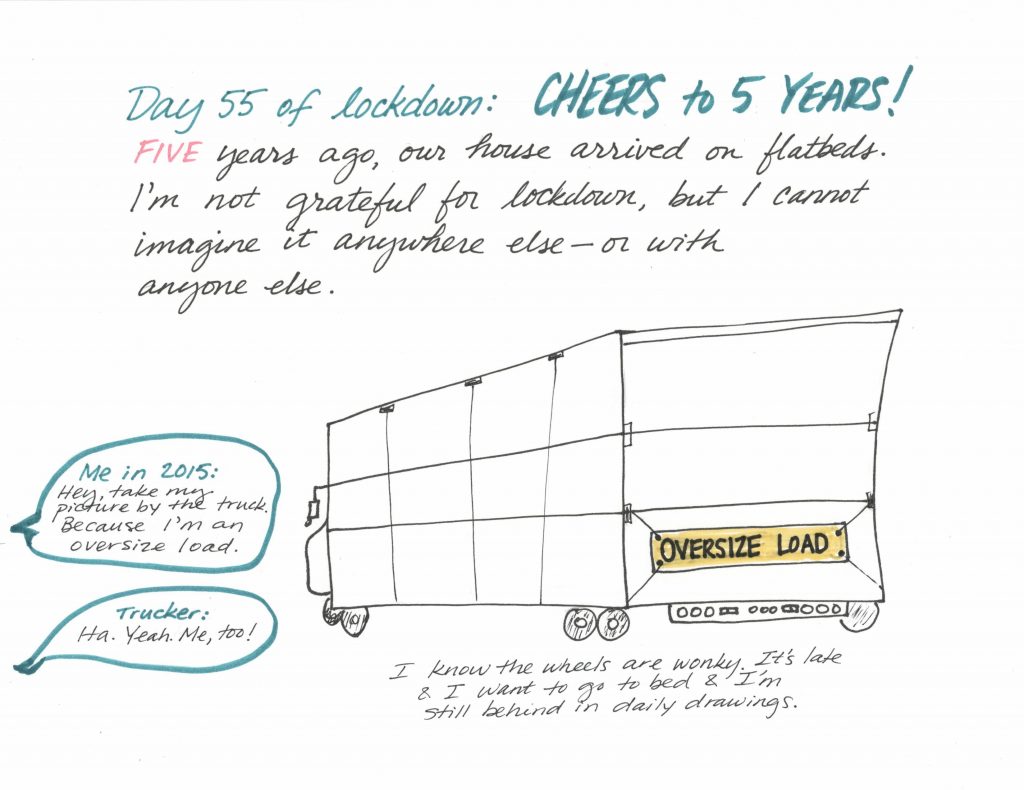 Day 55 of lockdown: CHEERS to 5 YEARS!
FIVE years ago, our house arrived on flatbeds.
I'm not grateful for lockdown, but I cannot
imagine it anywhere else – or with
anyone else.
Me in 2015:
Hey, take my
picture by the truck.
Because I'm an
oversize load.
Trucker:
Ha. Yeah. Me, too!
OVERSIZE LOAD
I know the wheels are wonky. It's late
& I want to go to bed & I'm
still behind in daily drawings.